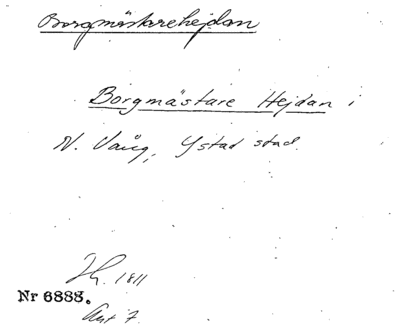 Borgmästarehejdan
Borgmästare Hejdan i
N. Vång, Ystad stad.
1811
Nr 6888.
Akt 7